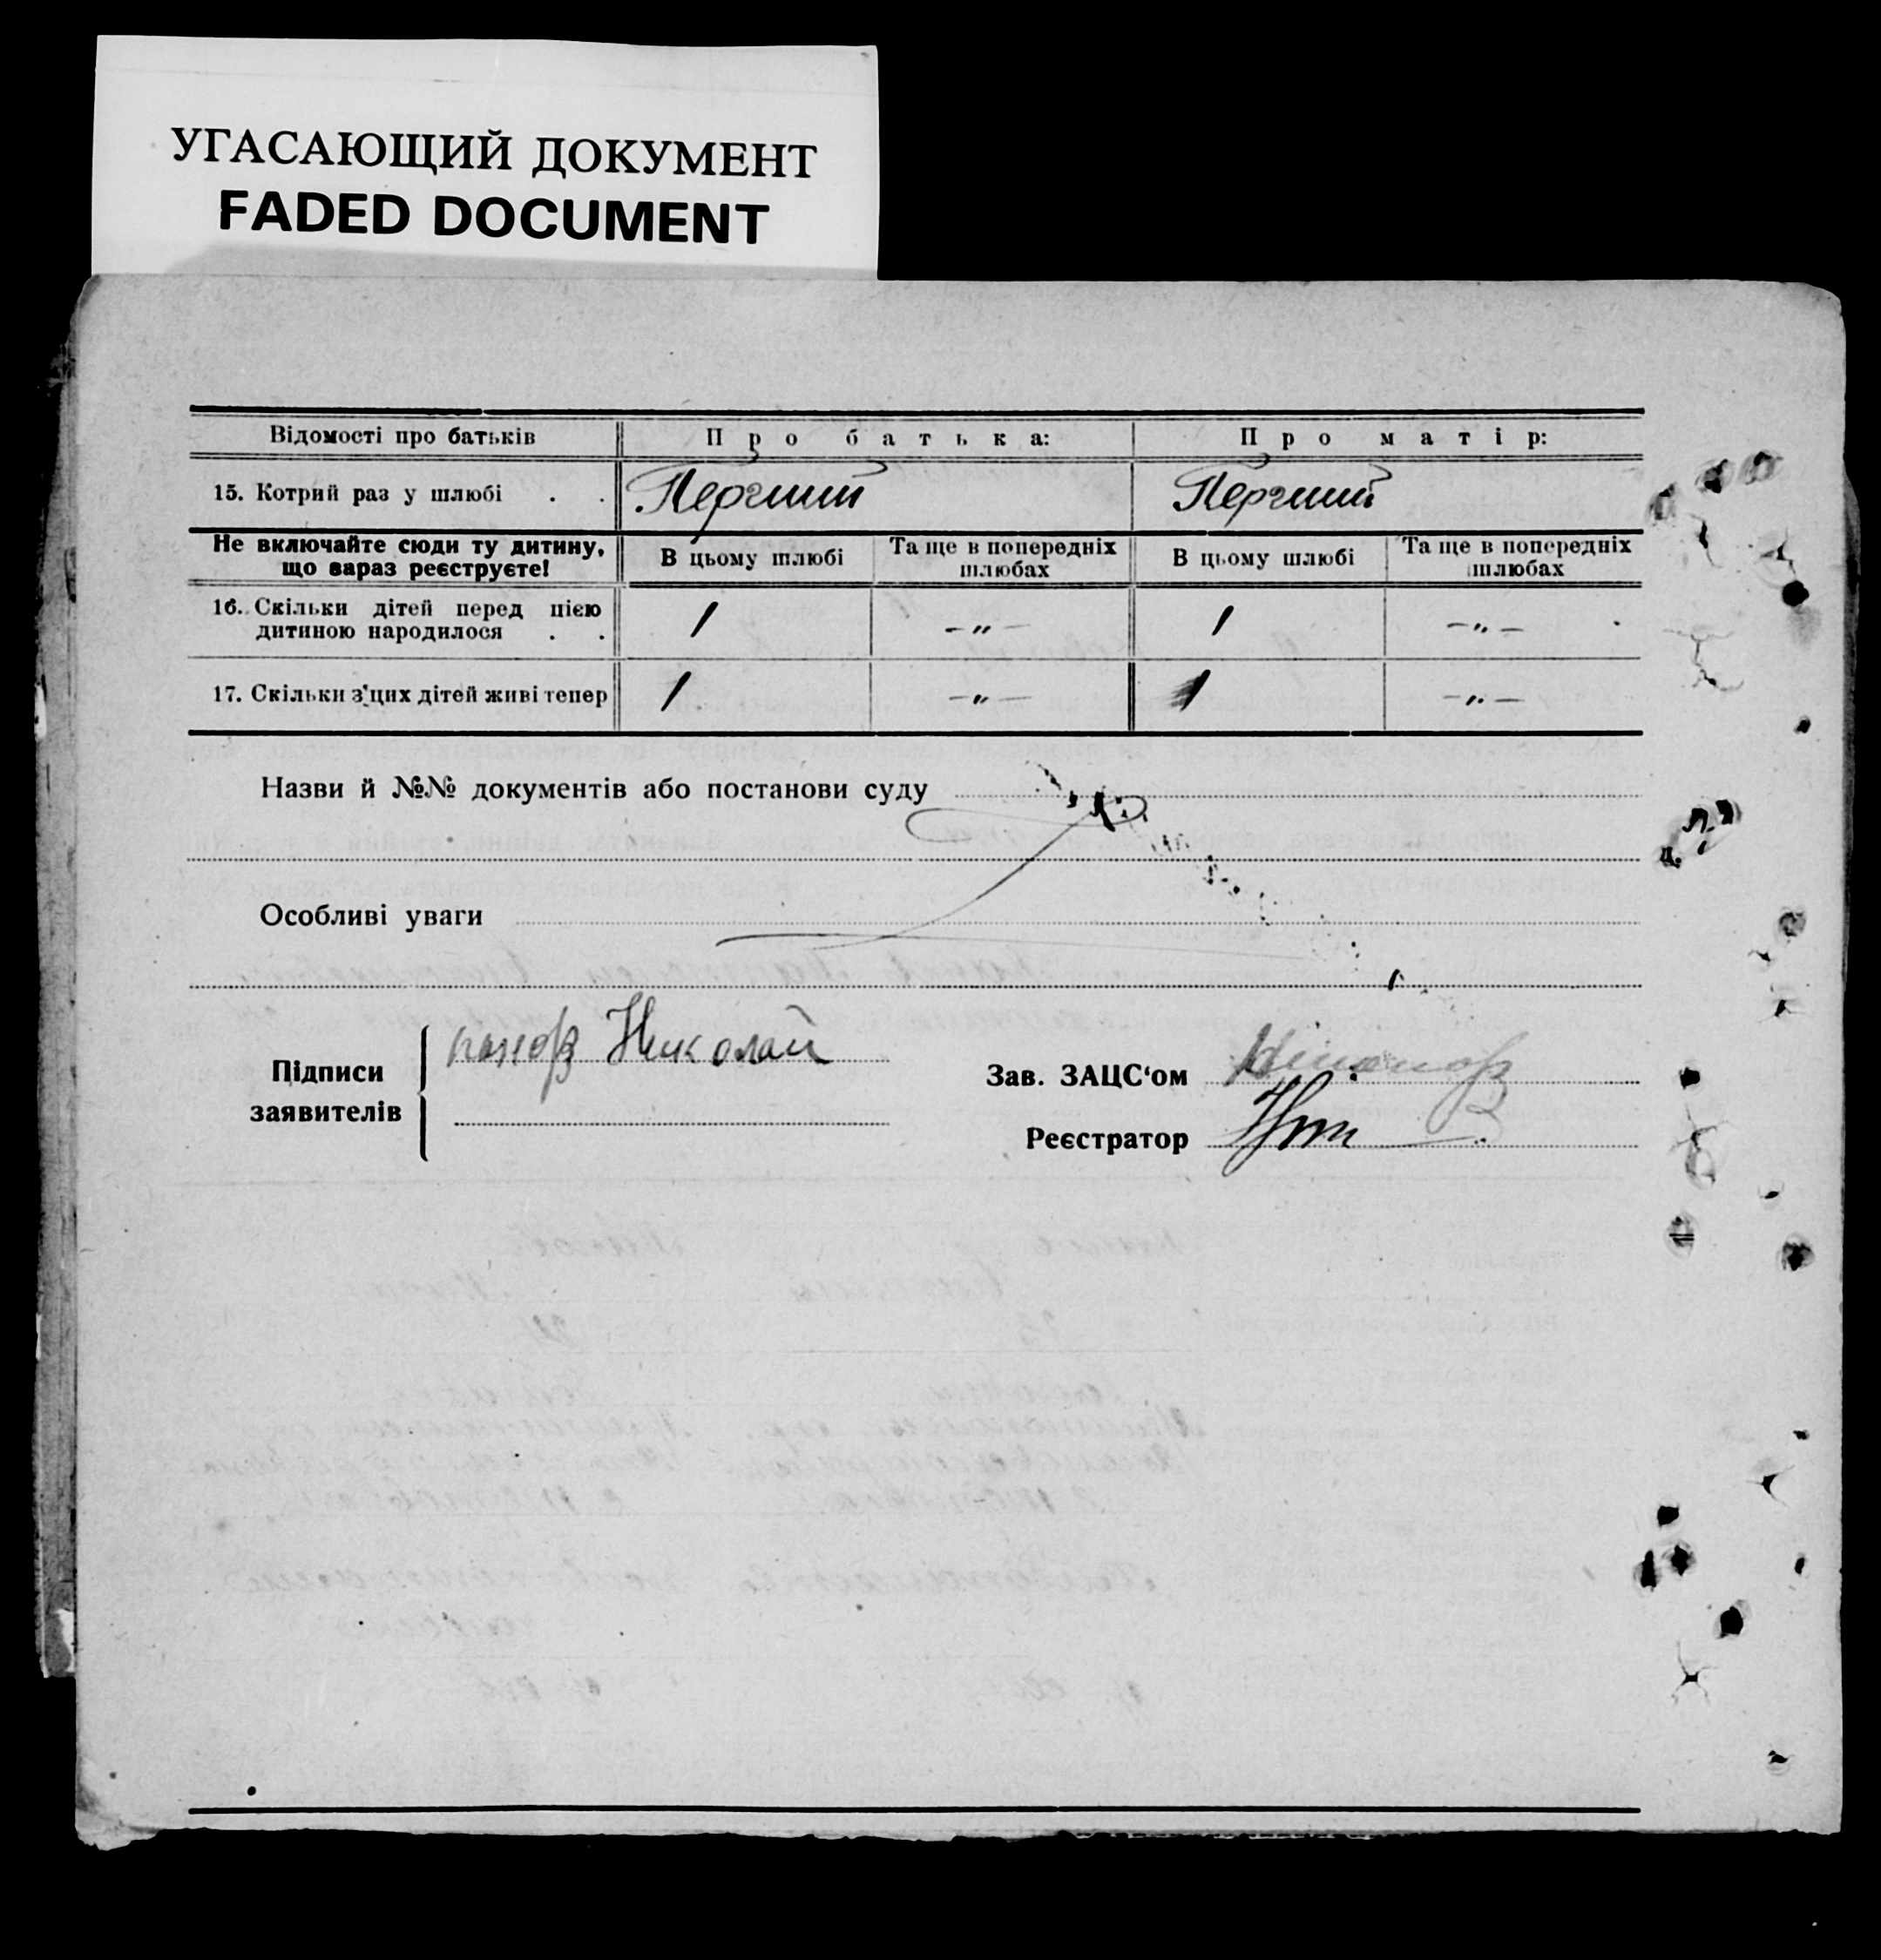 УГАСАЮЩИЙ ДОКУМЕНТ
FADED DOCUMENT
Відомості про батьків Про батька: Про матір:
15. Котрий раз у шлюбі . . Перший Перший
Не включайте сюди ту дитину, що вараз реєструєте! В цьому шлюбі Та ще в попередніх шлюбах В цьому шлюбі Та ще в попередніх шлюбах
16. Скільки дітей перед цією дитиною народилося . . 1 -„- 1 -„-
17. Скільки з цих дітей живі тепер 1 -„- 1 -„-
Назви й №№ документів або постанови суду
Особливі уваги
Підписи заявителів Николай
Зав. ЗАЦС‘ом
Реєстратор